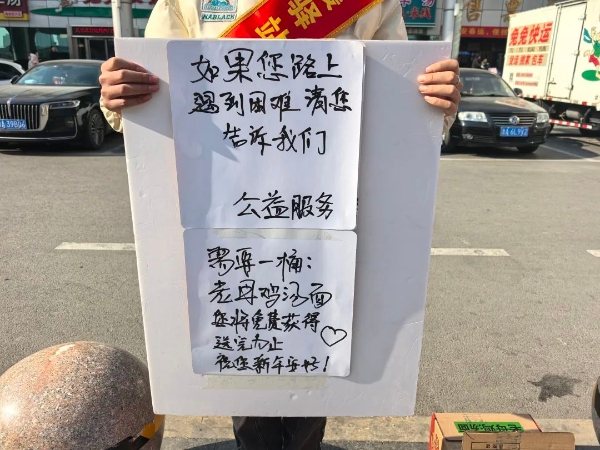 KARLACK
如果您路上
遇到困难 请您
告诉我们
公益服务
需要一桶：
老母鸡汤面
您将免费获得
送完为止
祝您新年安好！
兔兔快运
老母鸡汤面